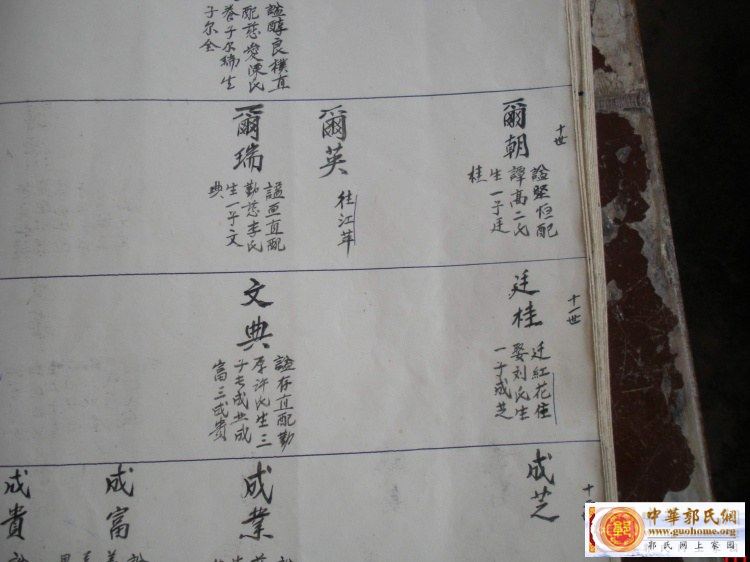 謚醇良樸直
配慈愛陳氏
子尔瑞生
子尔全
十世
爾朝
謚堅恒配
譚高二氏
生一子廷
桂
爾英
住江茸
爾瑞
謚正直配
勤慈李氏
生一子文
典
十一世
廷桂
迁紅花住
娶刘氏生
一子成芝
文典
謚存直配勤
厚許氏生三
子長成業成
富三成貴
成芝
成業
成富
成貴
中華郭氏網
www.guohome.org
郭氏网上家园